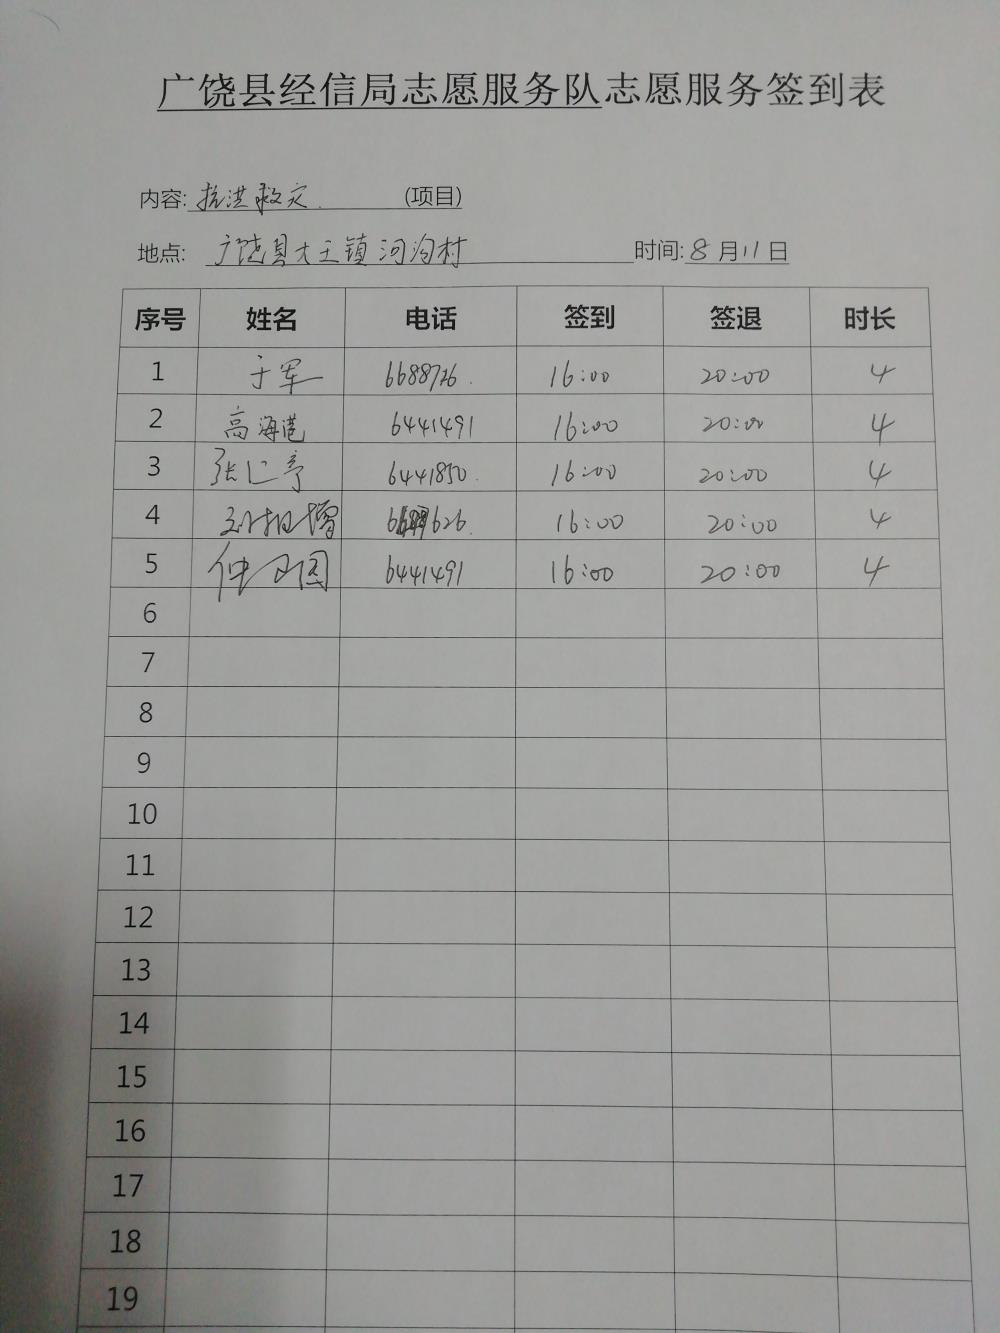 广饶县经信局志愿服务队志愿服务签到表
内容: 抗洪救灾. (项目)
地点: 广饶县大王镇河沟村 时间: 8月11日
序号 姓名 电话 签到 签退 时长
1 于军 6688726. 16:00 20:00 4
2 高海港 6441491 16:00 20:00 4
3 张仁亭 6441850. 16:00 20:00 4
4 626. 16:00 20:00 4
5 6441491 16:00 20:00 4
6
7
8
9
10
11
12
13
14
15
16
17
18
19